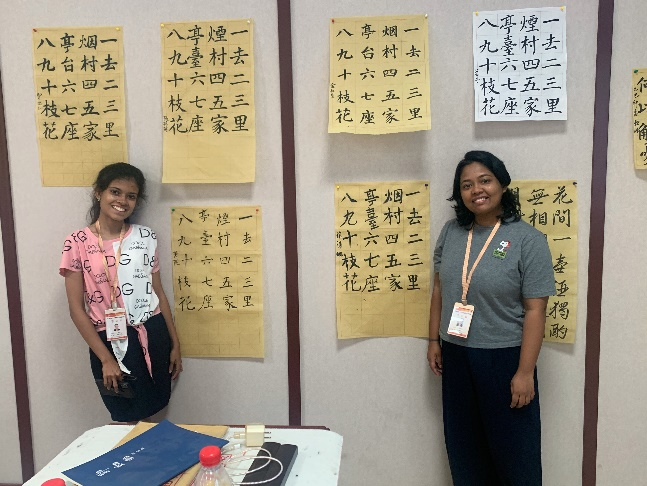 一去二三里
烟村四五家
亭台六七座
八九十枝花
一去二三里
煙村四五家
亭臺六七座
八九十枝花
一去二三里
烟村四五家
亭台六七座
八九十枝花
一去二三里
煙村四五家
亭臺六七座
八九十枝花
一去二三里
煙村四五家
亭臺六七座
八九十枝花
一去二三里
烟村四五家
亭臺六七座
八九十枝花
花間一壺酒獨酌
無相
D&G
DG